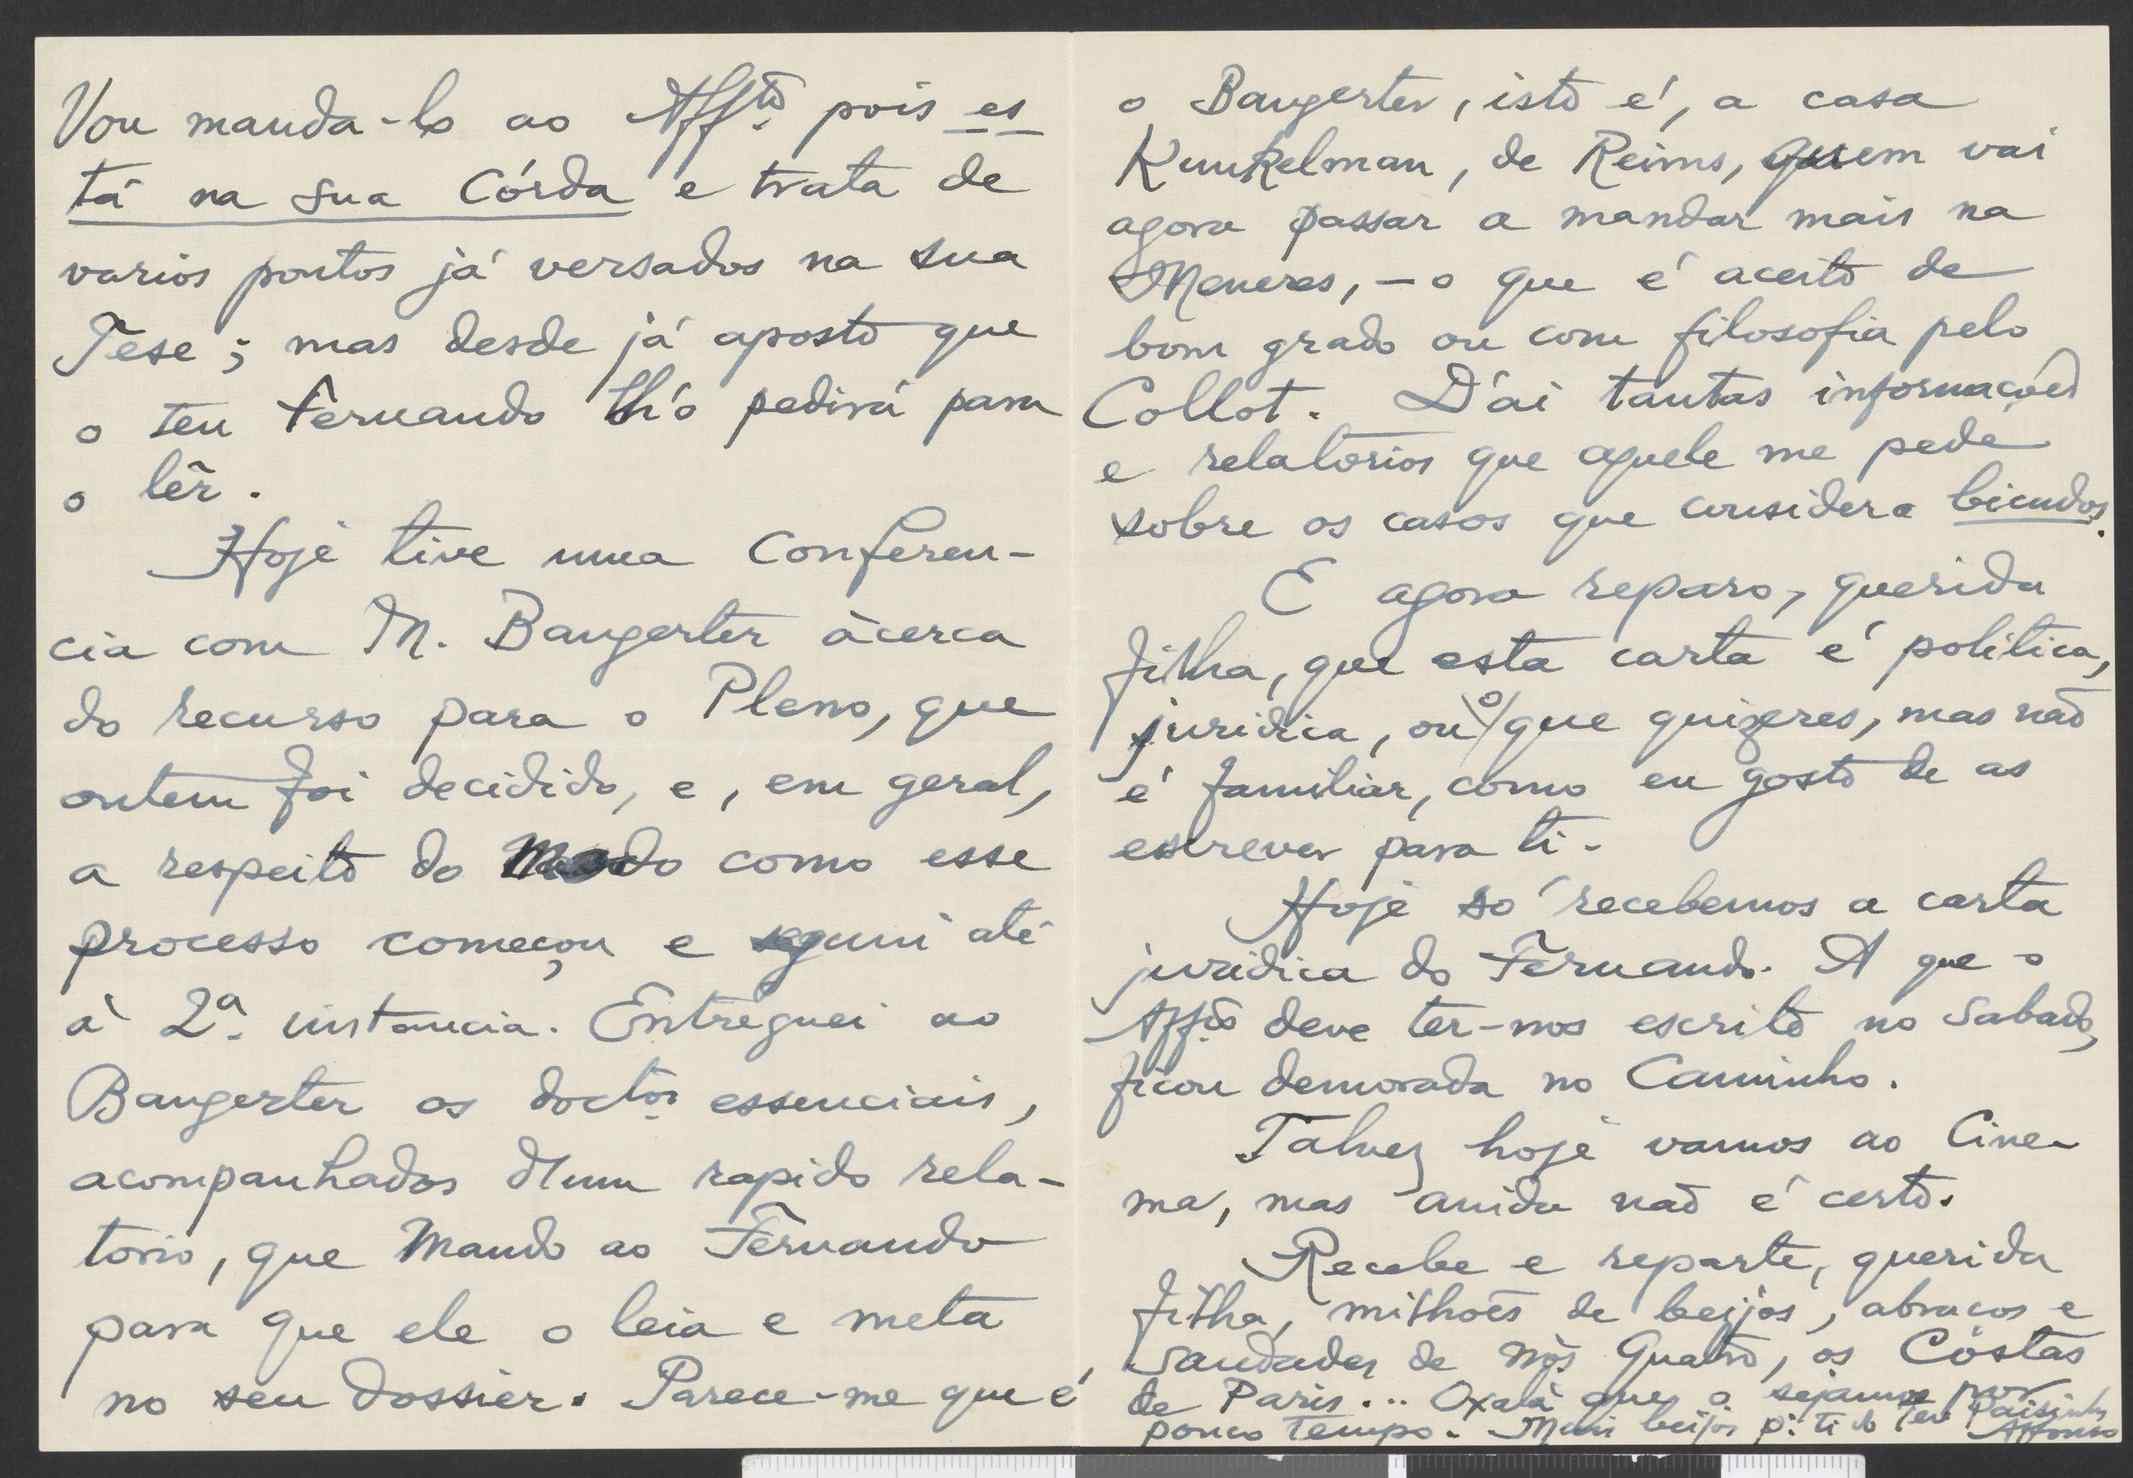 Vou manda-lo ao Affto. pois es
tá na sua Córda e trata de
varios pontos já versados na sua
Tese; mas desde já aposto que
o teu Fernando lh'o pedirá para
o lêr.
Hoje tive uma conferen-
cia com M. Baugerter àcerca
do recurso para o Pleno, que
ontem foi decidido, e, em geral,
a respeito do modo como esse
processo começou e seguiu até
à 2ª. instancia. Entreguei ao
Baugerter os doctos. essenciais,
acompanhados d'um rapido rela-
torio, que mando ao Fernando
para que ele o leia e meta
no seu dossier. Parece-me que é
o Baugerter, isto é, a casa
Kunkelman, de Reims, quem vai
agora passar a mandar mais na
Meneres, - o que é aceito de
bom grado ou com filosofia pelo
Collot. D'ái tantas informações
e relatorios que aquele me pede
sobre os casos que considera bicudos.
E agora reparo, querida
filha, que esta carta é politica,
juridica, ou o que quizeres, mas não
é familiar, como eu gosto de as
escrever para ti.
Hoje só recebemos a carta
juridica do Fernando. A que o
Affto. deve ter-nos escrito no sabado,
ficou demorada no caminho.
Talvez hoje vamos ao Cine-
ma, mas ainda não é certo.
Recebe e reparte, querida
filha, milhões de beijos, abraços e
saudades de nós quatro, os Cóstas
de Paris... Oxalá que o sejamos por
pouco tempo. Mais beijos p. ti do teu Paisinho
Affonso